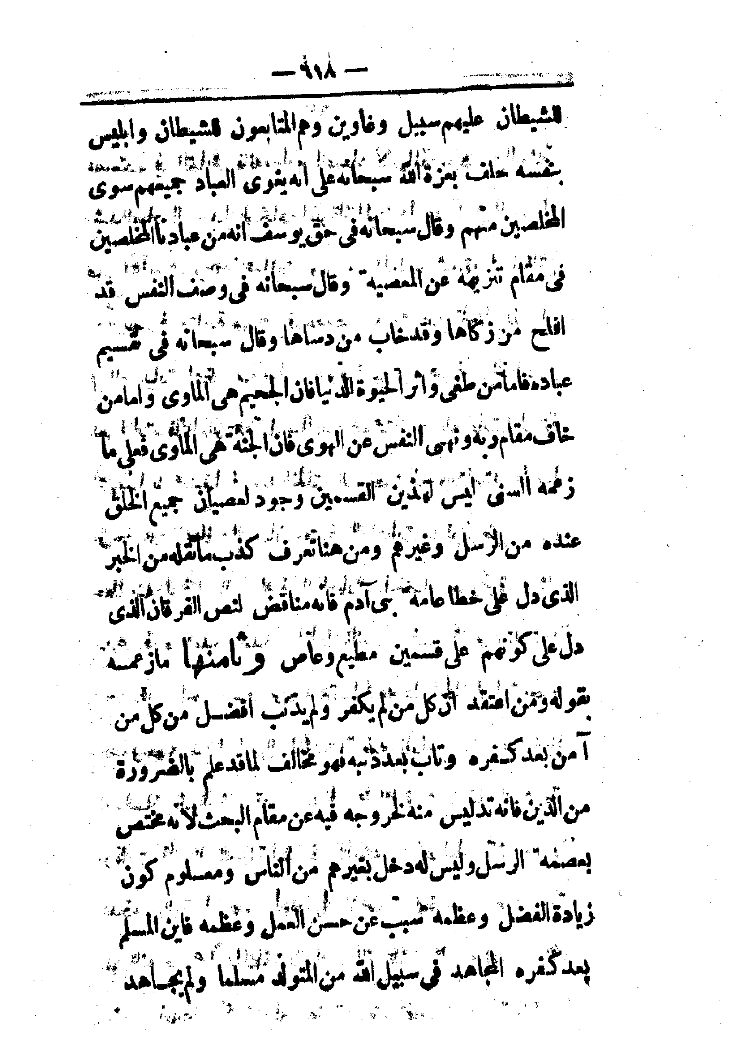 — ٩١٨ —
للشيطان عليهم سبيل وغاوين وهم المتابعون للشيطان وابليس
بنفسه حلف بعزة الله سبحانه على انه يغوى العباد جميعهم سوى
المخلصين منهم وقال سبحانه فى حق يوسف انه من عبادنا المخلصين
فى مقام تنزيهه عن المعصية وقال سبحانه فى وصف النفس قد
افلح من زكاها وقد خاب من دساها وقال سبحانه فى تقسيم
عباده فاما من طغى وآثر الحيوة الدنيا فان الجحيم هى الماوى واما من
خاف مقام ربه ونهى النفس عن الهوى فان الجنة هى الماوى فعلى ما
زعمه السنى ليس لهذين القسمين وجود لعصيان جميع الخلق
عنده من الرسل وغيرهم ومن هنا تعرف كذب ما نقله من الخبر
الذى دل على خطا عامة بنى آدم فانه مناقض لنص الفرقان الذى
دل على كونهم على قسمين مطيع وعاص وثامنها ما زعمه
بقوله ومن اعتقد ان كل من لم يكفر ولم يذنب افضل من كل من
آمن بعد كفره وتاب بعد ذنبه فهو مخالف لما قد علم بالضرورة
من الدين فانه تدليس منه لخروجه فيه عن مقام البحث لانه مختص
بعصمة الرسل وليس له دخل بغيرهم من الناس ومعلوم كون
زيادة الفضل وعظمه سبب عن حسن العمل وعظمه فاين المسلم
بعد كفره المجاهد فى سبيل الله من المتولد مسلما ولم يجاهد